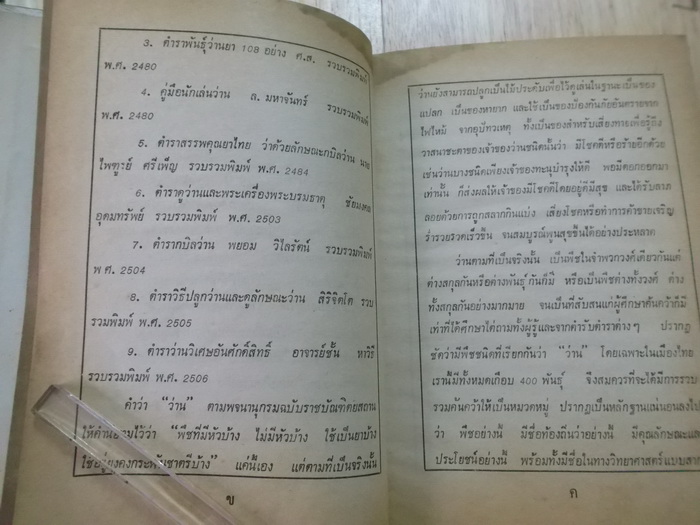 3. ตำราพันธุ์ว่านยา 108 อย่าง ศ.ส. รวบรวมพิมพ์
พ.ศ. 2480
4. คู่มือนักเล่นว่าน ล. มหาจันทร์ รวบรวมพิมพ์
พ.ศ. 2480
5. ตำราสรรพคุณยาไทย ว่าด้วยลักษณะกบิลว่าน นาย
ไพฑูรย์ ศรีเพ็ญ รวบรวมพิมพ์ พ.ศ. 2484
6. ตำราดูว่านและพระเครื่องพระบรมธาตุ ชัยมงคล
อุดมทรัพย์ รวบรวมพิมพ์ พ.ศ. 2503
7. ตำรากบิลว่าน พยอม วิไลรัตน์ รวบรวมพิมพ์
พ.ศ. 2504
8. ตำราวิธีปลูกว่านและดูลักษณะว่าน สิริจิตโต รวบ
รวมพิมพ์ พ.ศ. 2505
9. ตำราว่านวิเศษอันศักดิ์สิทธิ์ อาจารย์ชั้น หาวิธี
รวบรวมพิมพ์ พ.ศ. 2506
คำว่า "ว่าน" ตามพจนานุกรมฉบับราชบัณฑิตยสถาน
ให้คำนิยามไว้ว่า "พืชที่มีหัวบ้าง ไม่มีหัวบ้าง ใช้เป็นยาบ้าง
ใช้อยู่ยงคงกระพันชาตรีบ้าง" แค่นี้เอง แต่ตามที่เป็นจริงนั้น
ข
ว่านยังสามารถปลูกเป็นไม้ประดับเพื่อไว้ดูเล่นในฐานะเป็นของ
แปลก เป็นของหายาก และใช้เป็นของป้องกันภัยอันตรายจาก
ไฟไหม้ จากอุบัทวเหตุ ทั้งเป็นของสำหรับเสี่ยงทายเพื่อรู้ถึง
วาสนาชะตาของเจ้าของว่านชนิดนั้นว่า มีโชคดีหรือร้ายอีกด้วย
เช่นว่านบางชนิดเพียงเจ้าของทะนุบำรุงให้ดี พอมีดอกออกมา
เท่านั้น ก็ส่งผลให้เจ้าของมีโชคดีโดยอยู่ดีมีสุข และได้รับลาภ
ลอยด้วยการถูกสลากกินแบ่ง เสี่ยงโชคหรือทำการค้าขายเจริญ
ร่ำรวยรวดเร็วขึ้น จนสมบูรณ์พูนสุขขึ้นได้อย่างประหลาด
ว่านตามที่เป็นจริงนั้น เป็นพืชในจำพวกวงศ์เดียวกันแต่
ต่างสกุลกันหรือต่างพันธุ์กันก็มี หรือเป็นพืชต่างทั้งวงศ์ ต่าง
ทั้งสกุลกันอย่างมากมาย จนเป็นที่สับสนแก่ผู้ศึกษาค้นคว้าก็มี
เท่าที่ได้ศึกษาไต่ถามทั้งผู้รู้และจากตำรับตำราต่างๆ ปรากฏ
ชัดว่ามีพืชชนิดที่เรียกกันว่า "ว่าน" โดยเฉพาะในเมืองไทย
เรานี้มีทั้งหมดเกือบ 400 พันธุ์ จึงสมควรที่จะได้มีการรวบ
รวมค้นคว้าให้เป็นหมวดหมู่ ปรากฏเป็นหลักฐานแน่นอนลงไป
ว่า พืชอย่างนี้ มีชื่อท้องถิ่นว่าอย่างนี้ มีคุณลักษณะและ
ประโยชน์อย่างนี้ พร้อมทั้งมีชื่อในทางวิทยาศาสตร์แบบสากล
ค